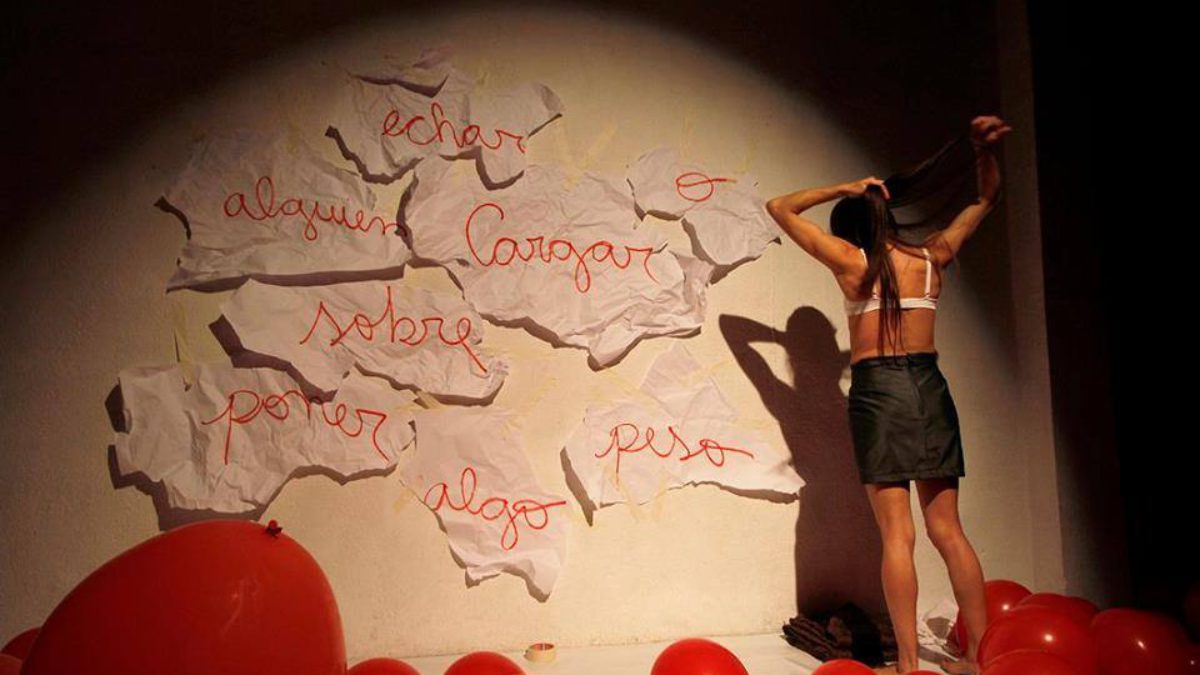 echar
alguien
Cargar
o
sobre
poner
peso
algo